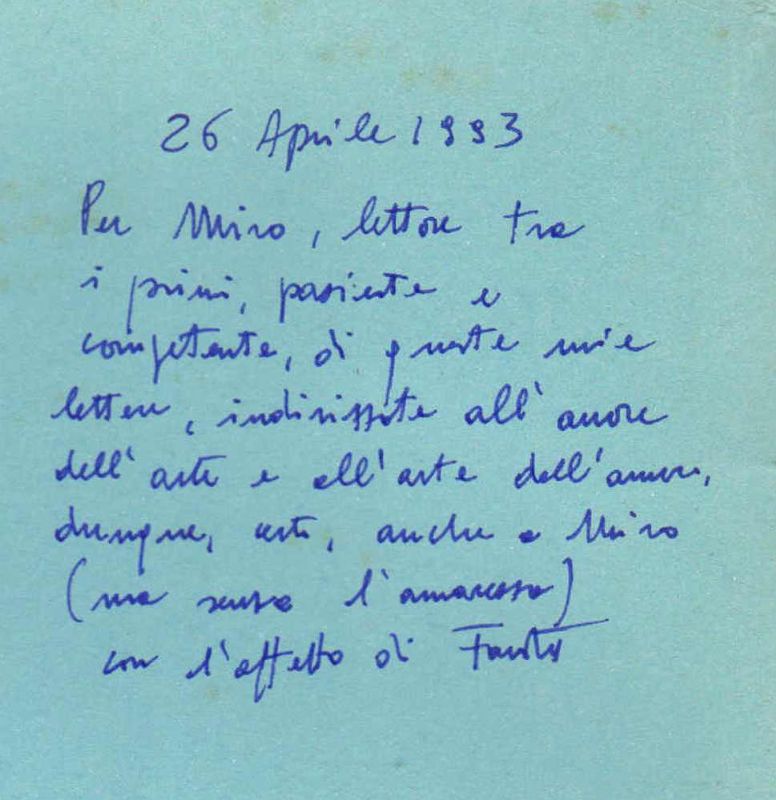 26 Aprile 1993
Per Miro, lettore tra
i primi, paziente e
competente, di queste mie
lettere, indirizzate all'amore
dell'arte e all'arte dell'amore,
dunque, certo, anche a Miro
(ma senza l'amarezza)
con l'affetto di Fausto